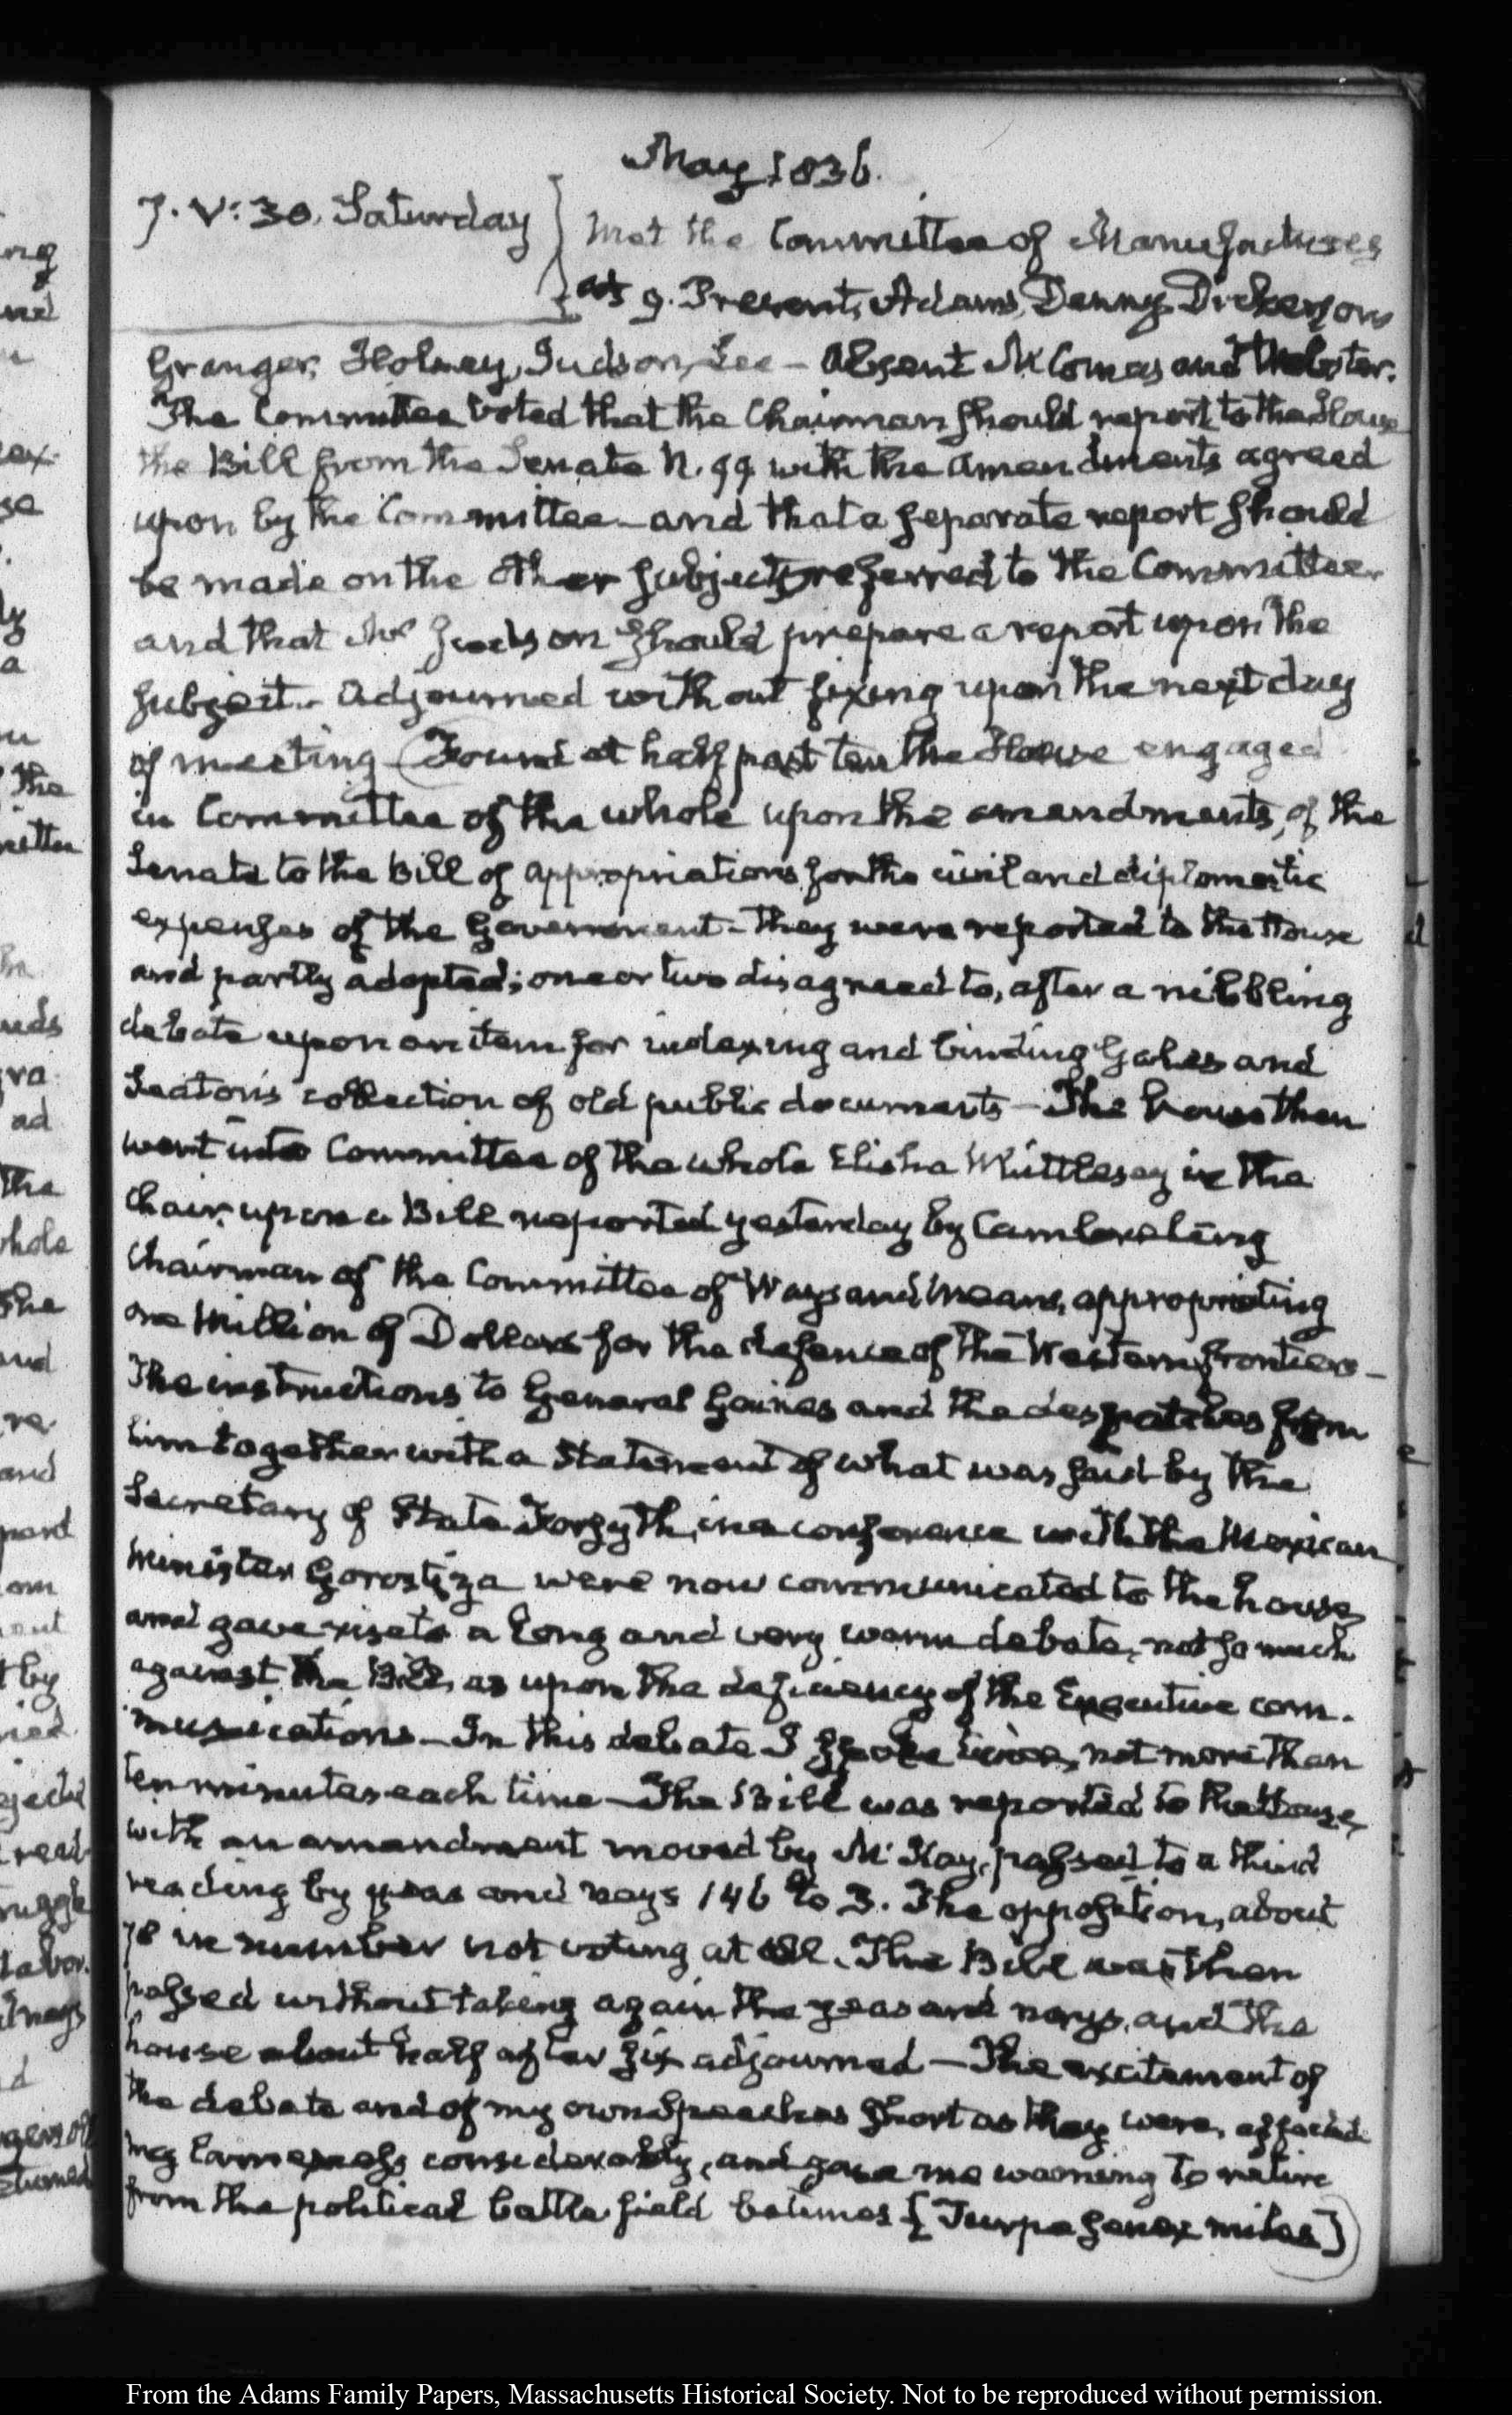 May 1836.
7. V: 30. Saturday
Met the Committee of Manufactures
at 9. Present, Adams, Denny, Dickerson
Granger, Holsey, Judson, Lee — Absent McComas and Webster.
The Committee Voted that the Chairman should report to the House
the Bill from the Senate N. 99 with the Amendments agreed
upon by the Committee — and that a separate report should
be made on the other subjects referred to the Committee
and that Mr Judson should prepare a report upon the
subject. Adjourned without fixing upon the next day
of meeting (Found at half past ten the House engaged
in Committee of the whole upon the amendments, of the
Senate to the Bill of appropriations for the civil and diplomatic
expenses of the Government — they were reported to the House
and partly adopted; one or two disagreed to, after a nibbling
debate upon an item for indexing and binding Gales and
Seaton's collection of old public documents — The house then
went into Committee of the whole Elisha Whittlesey in the
Chair, upon a Bill reported yesterday by Cambreleng
Chairman of the Committee of Ways and Means, appropriating
one Million of Dollars for the defence of the Western frontiers —
The instructions to General Gaines and the despatches from
him together with a statement of what was said by the
Secretary of State Forsyth, in a conference with the Mexican
Minister Gorostiza were now communicated to the house,
and gave rise to a long and very warm debate, not so much
against the Bill, as upon the deficiency of the Executive com-
munications — In this debate I spoke twice, not more than
ten minutes each time — The Bill was reported to the House,
with an amendment moved by McKay, passed to a third
reading by yeas and nays 146 to 3. The opposition, about
70 in number not voting at all. The Bill was then
passed without taking again the yeas and nays, and the
house about half after six adjourned — The excitement of
the debate and of my own Speeches short as they were, affected
my lameness considerably, and gave me warning to retire
from the political battle field betimes [Turpe senex miles])
From the Adams Family Papers, Massachusetts Historical Society. Not to be reproduced without permission.